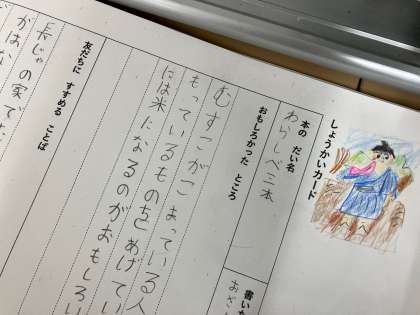 しょうかいカード
本の だい名
わらしべ三本
書い
おもしろかった ところ
むすこがこまっている人
もっているものをあげてい
には米になるのがおもしろい
友だちに すすめる ことば
長じゃの家で
がはな